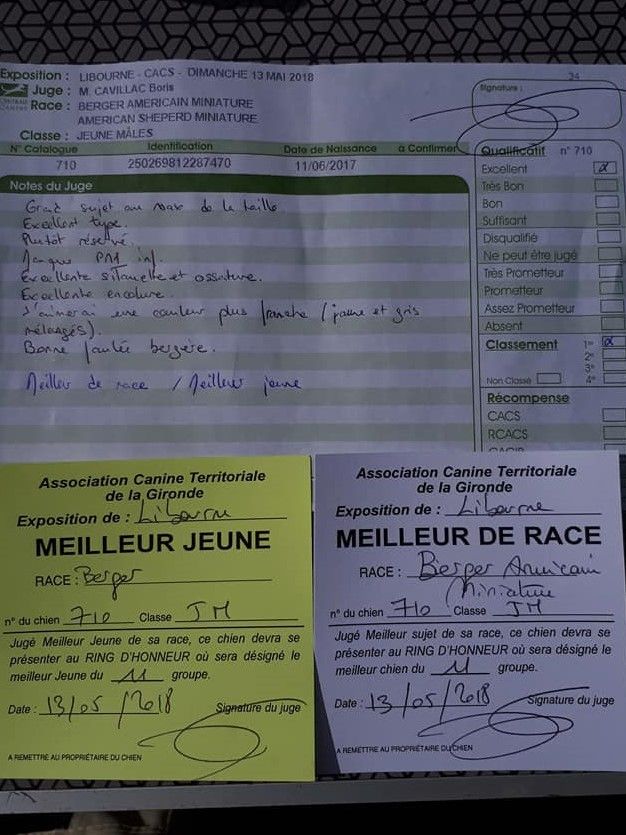 Exposition : LIBOURNE - CACS - DIMANCHE 13 MAI 2018
34
Juge : M. CAVILLAC Boris
Signature :
Race : BERGER AMERICAIN MINIATURE
AMERICAN SHEPERD MINIATURE
Classe : JEUNE MÂLES
N° Catalogue Identification Date de Naissance a Confirmer
710 250269812287470 11/06/2017
Notes du Juge
Grand sujet au max de la taille.
Excellent type.
Plutôt réservé.
Manque PM1 inf.
Excellente silhouette et ossature.
Excellente encolure.
J'aimerai une couleur plus franche (jaune et gris
mélangés).
Bonne foulée bergère.
Meilleur de race / Meilleur jeune
Qualificatif n° 710
Excellent
Très Bon
Bon
Suffisant
Disqualifié
Ne peut être jugé
Très Prometteur
Prometteur
Assez Prometteur
Absent
Classement 1er
2e
3e
Non Classé 4e
Récompense
CACS
RCACS
Association Canine Territoriale
de la Gironde
Exposition de : Libourne
MEILLEUR JEUNE
RACE : Berger
n° du chien 710 Classe JM
Jugé Meilleur Jeune de sa race, ce chien devra se
présenter au RING D'HONNEUR où sera désigné le
meilleur Jeune du 11 groupe.
Date : 13/05/2018
Signature du juge
A REMETTRE AU PROPRIÉTAIRE DU CHIEN
Association Canine Territoriale
de la Gironde
Exposition de : Libourne
MEILLEUR DE RACE
RACE : Berger Américain
Miniature
n° du chien 710 Classe JM
Jugé Meilleur sujet de sa race, ce chien devra se
présenter au RING D'HONNEUR où sera désigné le
meilleur chien du 11 groupe.
Date : 13/05/2018 Signature du juge
A REMETTRE AU PROPRIÉTAIRE DU CHIEN